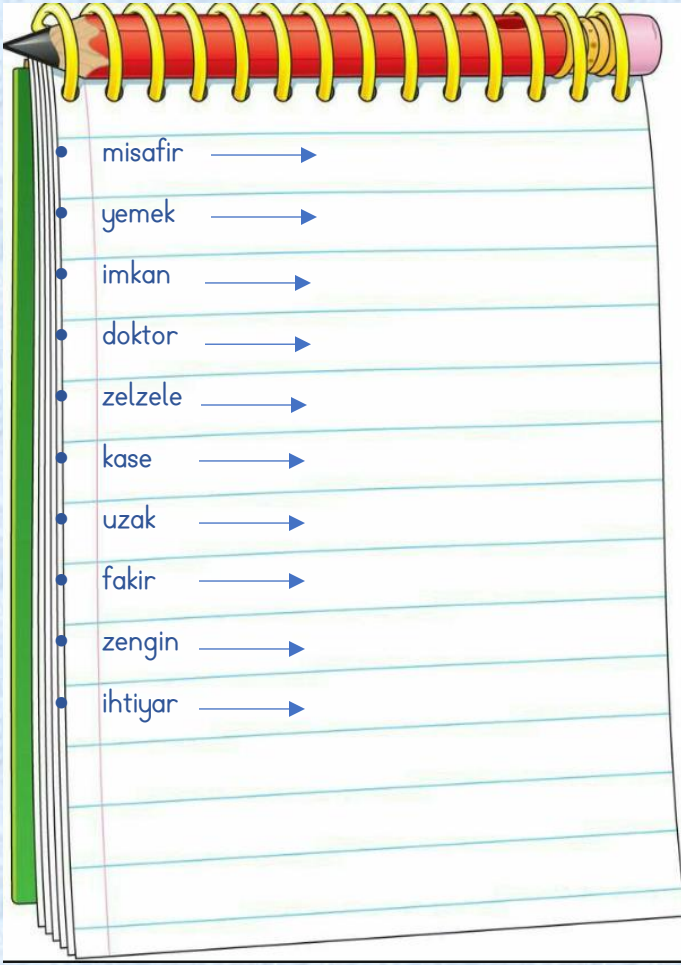 misafir
yemek
imkan
doktor
zelzele
kase
uzak
fakir
zengin
ihtiyar